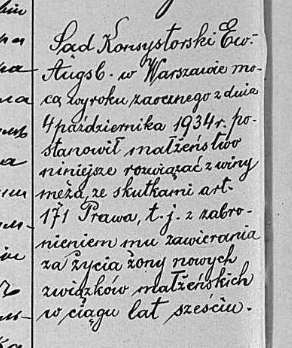 Sąd Konsystorski Ew.-
Augsb. w Warszawie mo-
cą wyroku zaocznego z dnia
4 października 1934 r. po-
stanowił małżeństwo
niniejsze rozwiązać z winy
męża, ze skutkami art.
171 Prawa, t. j. z zabro-
nieniem mu zawierania
za życia żony nowych
związków małżeńskich
w ciągu lat sześciu.